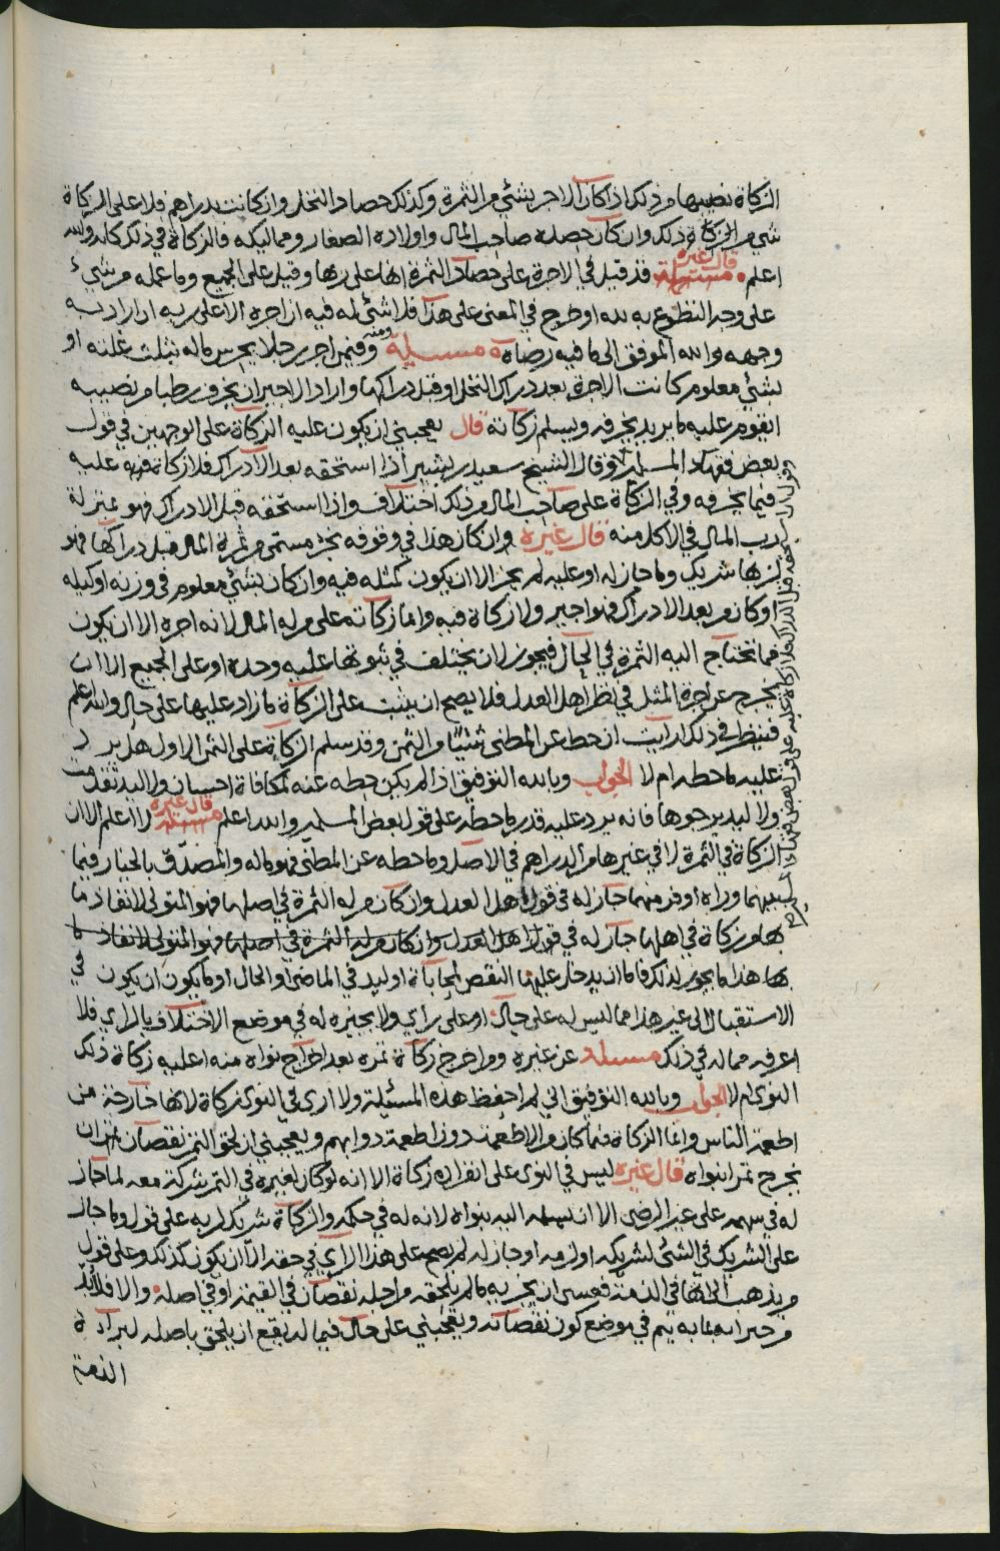 الزكاة نصيبها من ذلك اذا كان الاجر بشئ من الثمرة وكذلك حصاد النخل وان كانت بدراهم فلا على الزكاة
شئ من الزكاة في ذلك وان كان حصده صاحب المال واولاده الصغار ومماليكه فالزكاة في ذلك كله والله
اعلم مسئلة قال غيره قد قيل في الاجرة على حصاد الثمرة انها على ربها وقيل على الجميع وما عمله من شيء
على وجه التطوع به لله او خرج في المعنى على هذا فلا شئ له فيه ان اجره الا على ربه ان اراد به
وجهه والله الموفق الى ما فيه رضاه مسئلة ومنه وفيمن اجر رجلا يحرس ماله بثلث غلته او
بشئ معلوم كانت الاجرة بعد دراك النخل او قبل دراكها واراد الاجير ان يخرف رطبا من نصيبه
ايقوم عليه ما يريد يخرفه ويسلم زكاته قال يعجبني ان يكون عليه الزكاة على الوجهين في قول
بعض فقهاء المسلمين وقال الشيخ سعيد بن بشير اذا استحقه بعد الادراك فلا زكاة عليه
فيما يخرفه وفي الزكاة على صاحب المال من ذلك اختلاف واذا استحقه قبل الادراك فهو بمنزلة
رب المال في الاكل منه قال غيره وان كان هذا في وقوفه بجزء مسمى من ثمرة المال قبل دراكها فهو
لربها شريك وما جاز له او عليه لم يجز الا ان يكون كمثله فيه وان كان بشئ معلوم في وزنه او كيله
او كان من بعد الادراك فهو اجير ولا زكاة فيه وانما زكاته على من له المال لانه اجره الا ان يكون
فما تحتاج اليه الثمرة في الحال فيجوز لان يختلف في ثبوتها عليه وحده او على الجميع الا ان
يخرج عن اجرة المثل في نظر اهل العدل فلا يصح ان يثبت على الزكاة ما زاد عليها على حال والله اعلم
فينظر في ذلك ارايت ان حط عن المطني شيئا من الثمن وقد سلم الزكاة على الثمن الاول هل يرد
عليه ما حطه ام لا الجواب وبالله التوفيق اذا لم يكن حطه عنه لمكافاة احسان ولا ليد تقدمت
ولا ليد يرجوها فانه يرد عليه قدر ما حطه على قول بعض المسلمين والله اعلم مسئلة قال غيره لا اعلم الا ان
الزكاة في الثمرة لا في غيرها من الدراهم في الاصل وما حطه عن المطني فهو ماله والمصدق بالخيار فيما
بينهما وراه اوفر منهما جاز له في قول اهل العدل وان كان من له الثمرة في اصلها فهو المتولي لانفاذ ما
بها من زكاة في اهلها جاز له في قول اهل العدل وان كان من له الثمرة في اصلها فهو المتولي لانفاذ ما
بها هذا ما يجوز لذلك فاما ان يدخل عليها النقص لمحاباة او ليد في الماضي او الحال او ما يكون ان يكون في
الاستقبال الى غير هذا مما ليس له على حال او على راي ولا يجيزه له في موضع الاختلاف بالراي فلا
اعرفه مما له في ذلك مسئلة عن غيره ومن اخرج زكاة تمره بعد اخراج نواه منه اعليه زكاة ذلك
النوى ام لا الجواب وبالله التوفيق اني لم احفظ هذه المسئلة ولا ارى في النوى زكاة لانها خارجة من
اطعمة الناس وانما الزكاة فيما كان من الاطعمة دون اطعمة دوابهم ويعجبني ان لحق التمر نقصان ان
يخرج تمرا بنواه قال غيره ليس في النوى على انفراده زكاة الا انه لو كان لغيره في التمر شركة معه لما جاز
له في سهمه على غير الرضى الا ان يسلمه اليه بنواه لانه له في حكمه والزكاة شريك لربه على قول وما جاز
على الشريك في الشئ لشريكه او لزمه او جاز له لم يصح على هذا الراي في حقه الا ان يكون كذلك وعلى قول
من يذهب الى انها في الذمة فعسى ان يجزيه ما لم يلحقه من اجله نقصان في القيمة او في اصله والا فلا بد
من جبرانه بما به يتم في موضع كون نقصانه ويعجبني على حال فيما له يقع ان يلحق باصله لبراءة
الذمة